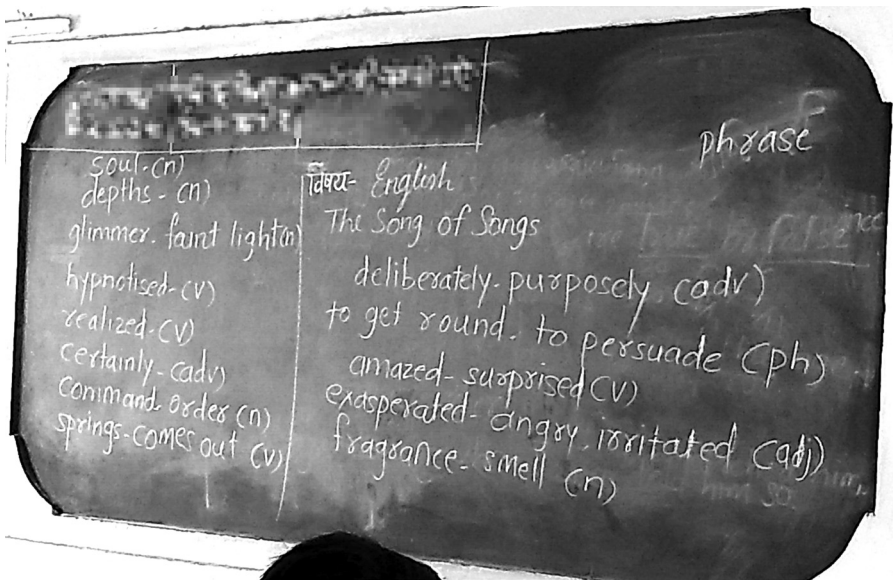 soul-(n)
depths-(n)
glimmer. faint light(n)
hypnotised-(v)
realized-(v)
certainly-(adv)
command. order (n)
springs-comes out (v)
विषय- English
The Song of Songs
deliberately-purposely (adv)
to get round. to persuade (ph)
amazed-surprised (v)
exasperated-angry, irritated (adj)
fragrance-smell (n)
phrase